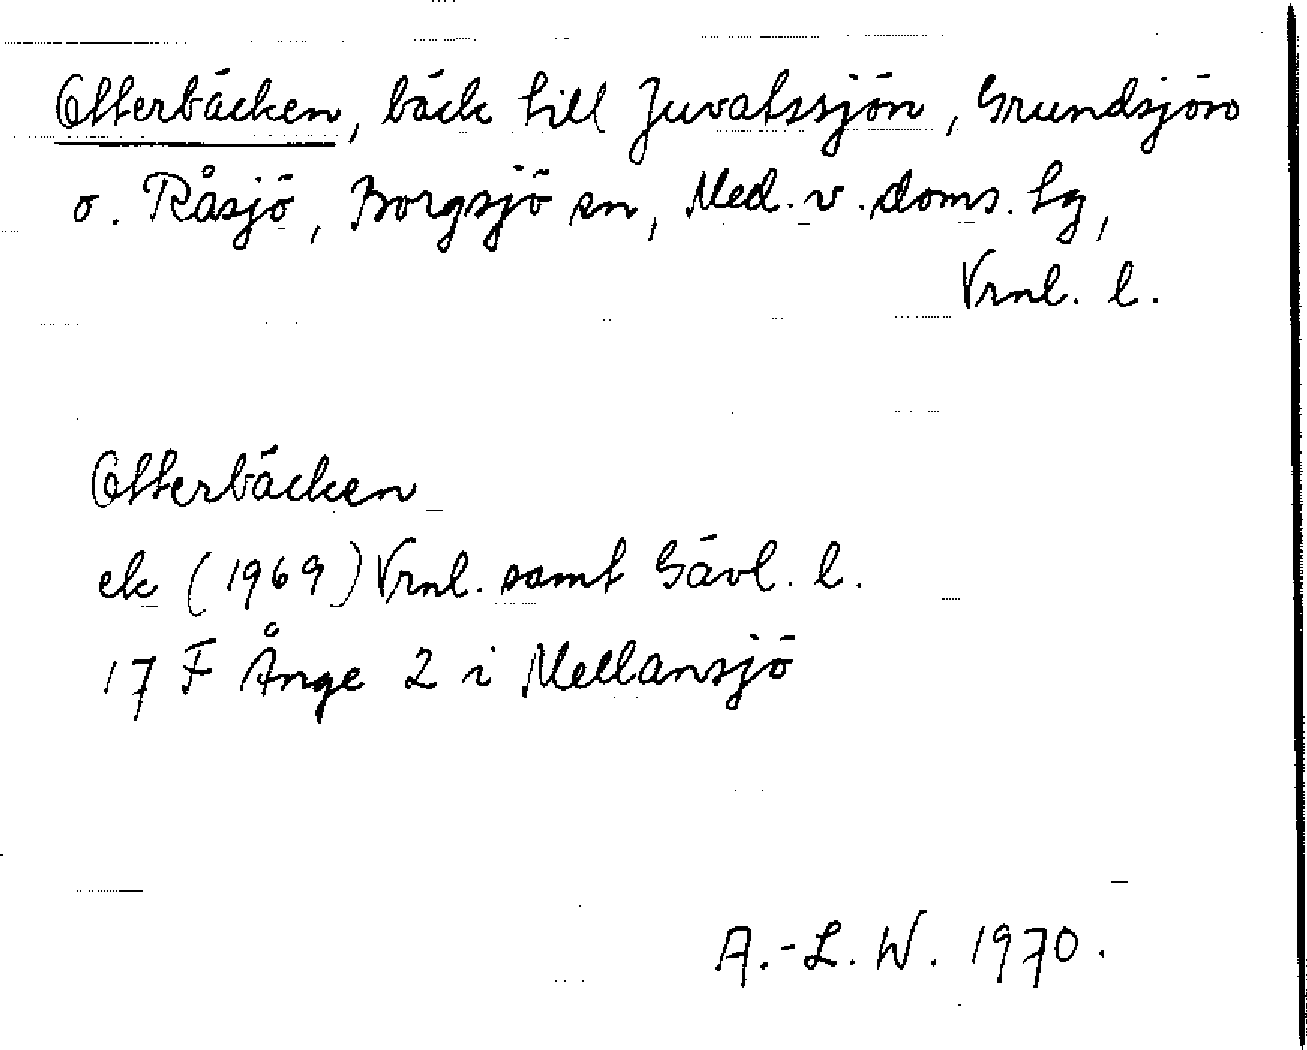 Otterbäcken, bäck till Juvatssjön, Grundsjön
o. Råsjö, Borgsjö sn, Med. v. doms. lg,
Vrnl. l.
Otterbäcken
ek (1969) Vrnl. samt Gävl. l.
17 F Ånge 2 i Mellansjö
A.-L. W. 1970.